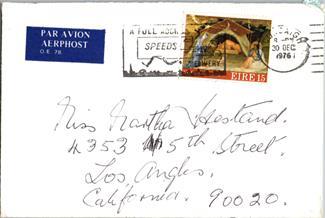 PAR AVION
AERPHOST
O.E. 78.
A FULL
SPEEDS
DELIVERY
ÉIRE 15
20 DEC
1976
Miss Martha Hestand.
4353 W 5th Street.
Los Angles.
California. 90020.